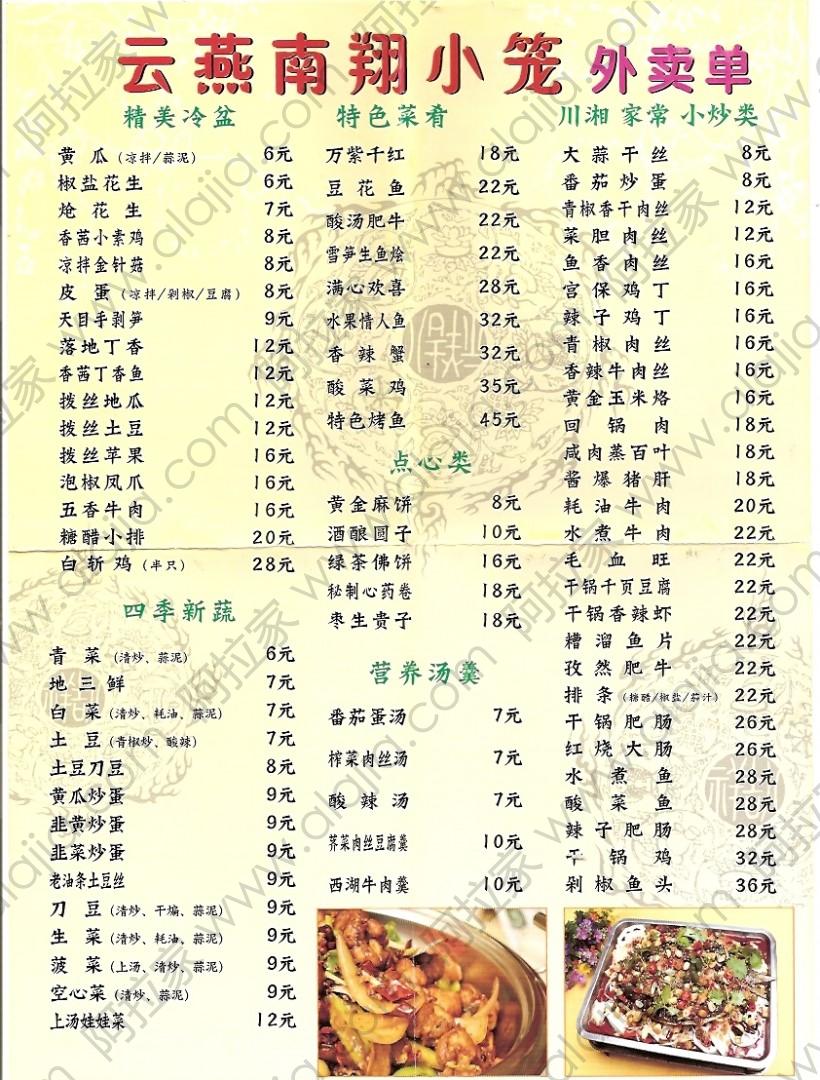 云燕南翔小笼 外卖单
精美冷盆
黄瓜(凉拌/蒜泥) 6元
椒盐花生 6元
炝花生 7元
香茜小素鸡 8元
凉拌金针菇 8元
皮蛋(凉拌/剁椒/豆腐) 8元
天目手剥笋 9元
落地丁香 12元
香茜丁香鱼 12元
拨丝地瓜 12元
拨丝土豆 12元
拨丝苹果 16元
泡椒凤爪 16元
五香牛肉 16元
糖醋小排 20元
白斩鸡(半只) 28元
四季新蔬
青菜(清炒、蒜泥) 6元
地三鲜 7元
白菜(清炒、耗油、蒜泥) 7元
土豆(青椒炒、酸辣) 7元
土豆刀豆 8元
黄瓜炒蛋 9元
韭黄炒蛋 9元
韭菜炒蛋 9元
老油条土豆丝 9元
刀豆(清炒、干煸、蒜泥) 9元
生菜(清炒、耗油、蒜泥) 9元
菠菜(上汤、清炒、蒜泥) 9元
空心菜(清炒、蒜泥) 9元
上汤娃娃菜 12元
特色菜肴
万紫千红 18元
豆花鱼 22元
酸汤肥牛 22元
雪笋生鱼烩 22元
满心欢喜 28元
水果情人鱼 32元
香辣蟹 32元
酸菜鸡 35元
特色烤鱼 45元
点心类
黄金麻饼 8元
酒酿圆子 10元
绿茶佛饼 16元
秘制心药卷 18元
枣生贵子 18元
营养汤羹
番茄蛋汤 7元
榨菜肉丝汤 7元
酸辣汤 7元
荠菜肉丝豆腐羹 10元
西湖牛肉羹 10元
川湘 家常 小炒类
大蒜干丝 8元
番茄炒蛋 8元
青椒香干肉丝 12元
菜胆肉丝 12元
鱼香肉丝 16元
宫保鸡丁 16元
辣子鸡丁 16元
青椒肉丝 16元
香辣牛肉丝 16元
黄金玉米烙 16元
回锅肉 18元
咸肉蒸百叶 18元
酱爆猪肝 18元
耗油牛肉 20元
水煮牛肉 22元
毛血旺 22元
干锅千页豆腐 22元
干锅香辣虾 22元
糟溜鱼片 22元
孜然肥牛 22元
排条(糖醋/椒盐/茄汁) 22元
干锅肥肠 26元
红烧大肠 26元
水煮鱼 28元
酸菜鱼 28元
辣子肥肠 28元
干锅鸡 32元
剁椒鱼头 36元
阿拉家 www.alajia.com